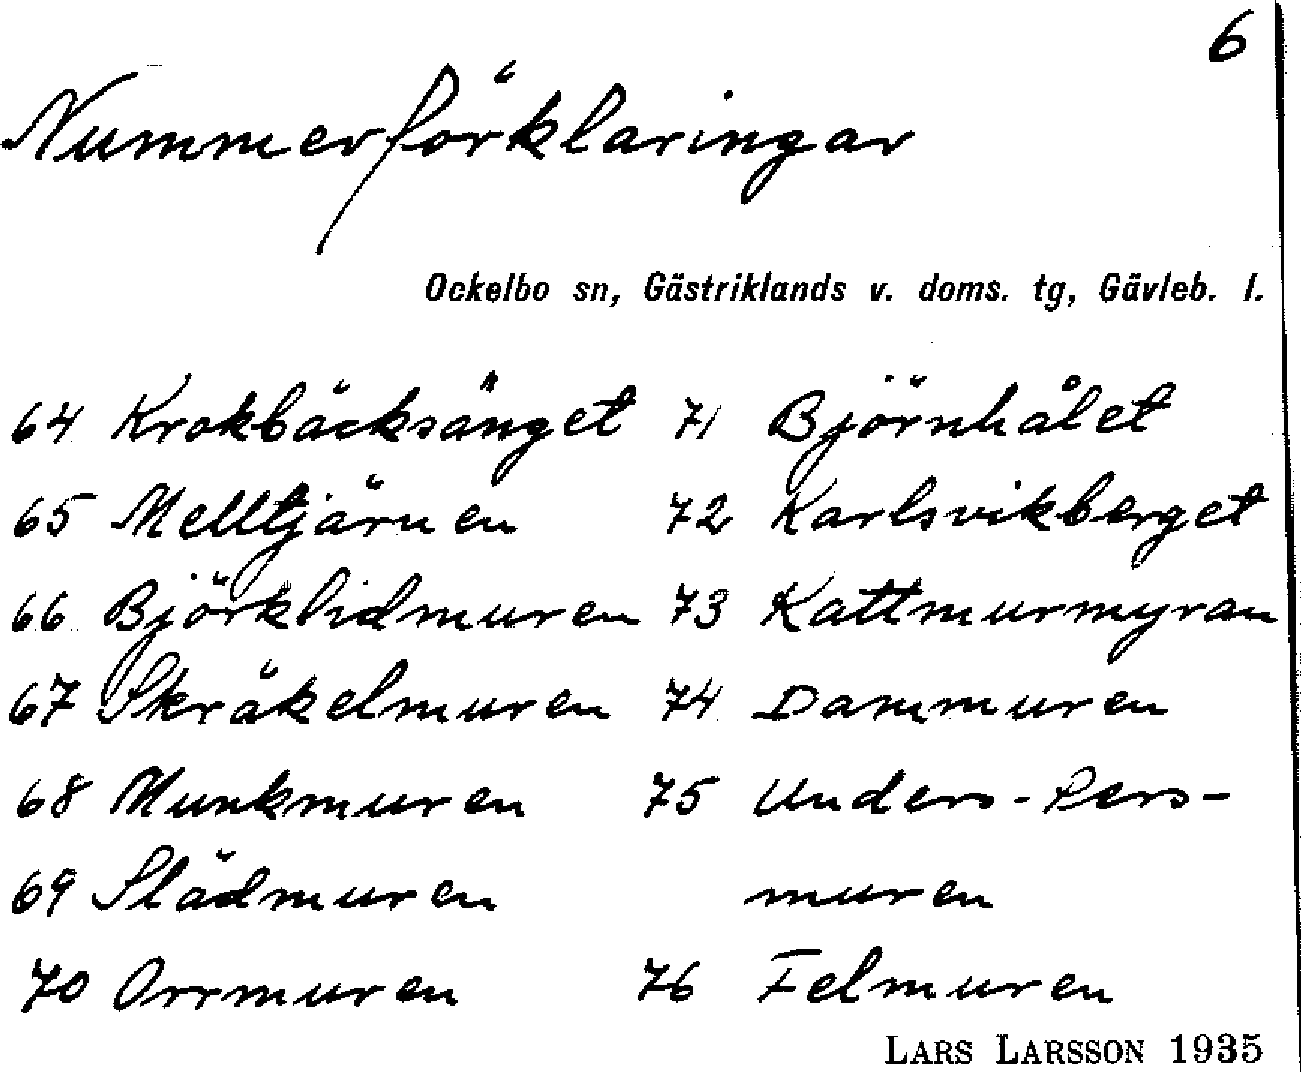 6
Nummerförklaringar
Ockelbo sn, Gästriklands v. doms. tg, Gävleb. l.
64 Krokbäcksänget 71 Björnhålet
65 Melltjärnen 72 Karlsvikberget
66 Björklidmuren 73 Kattmurmyran
67 Skräkelmuren 74 Dammuren
68 Munkmuren 75 Unders-Pers-
69 Slädmuren muren
70 Orrmuren 76 Felmuren
LARS LARSSON 1935